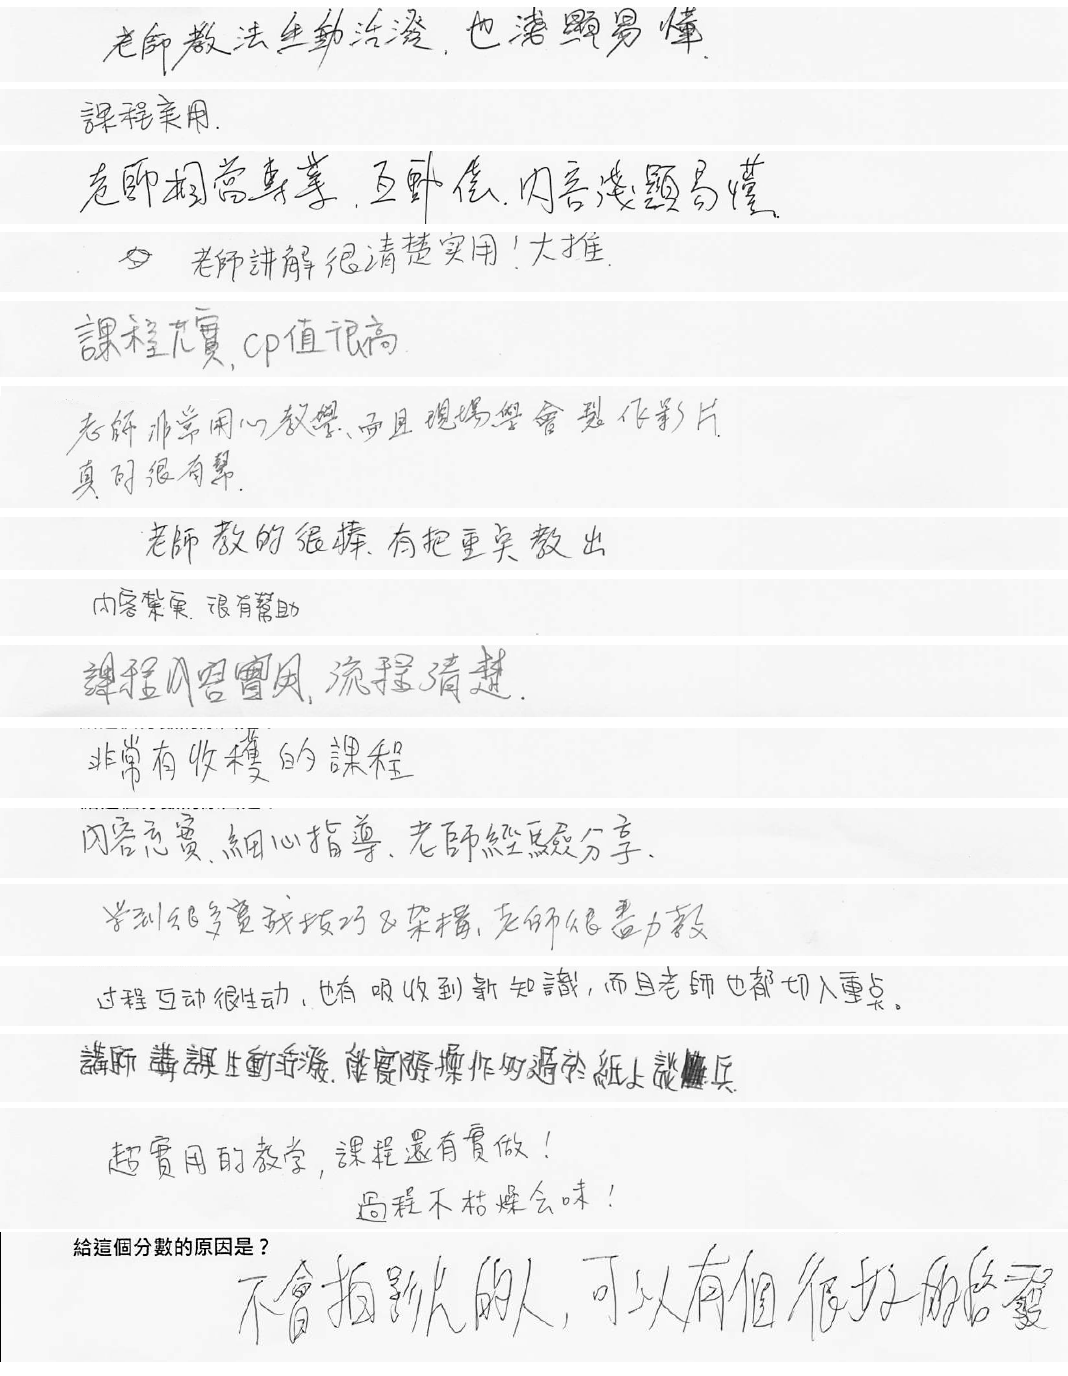 老師教法生動活潑，也淺顯易懂.
課程實用.
老師相當專業，互動佳，內容淺顯易懂.
老師講解很清楚实用！大推.
課程充實, cp值很高.
老師非常用心教學、而且現場學會製作影片.
真的很有幫.
老師教的很棒、有把重点教出
內容紮實. 很有幫助
課程內容實用, 流程清楚.
非常有收穫的課程
內容充實、細心指導、老師經驗分享.
学到很多實戰技巧&架構、老師很盡力教
过程互动很生动，也有吸收到新知識，而且老師也都切入重点。
講師講課生動活潑. 能實際操作 勝過於紙上談兵.
超實用的教学, 課程還有實做！
過程不枯燥乏味！
給這個分數的原因是？
不會拍影片的人，可以有個很好的啓發